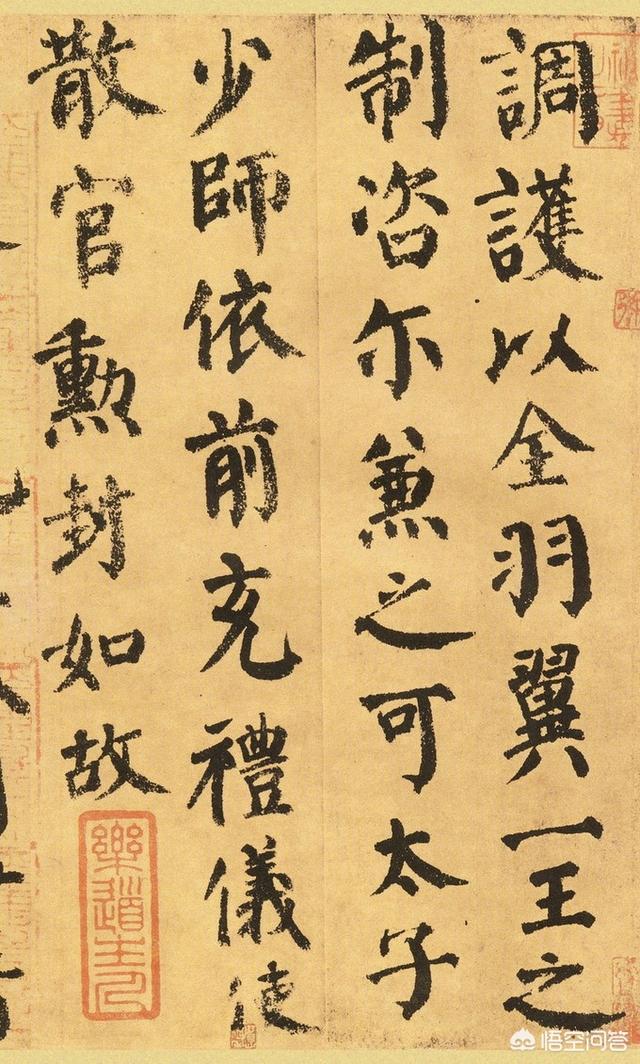 調護以全羽翼一王之
制咨尓兼之可太子
少師依前充禮儀使
散官勲封如故
悟空问答